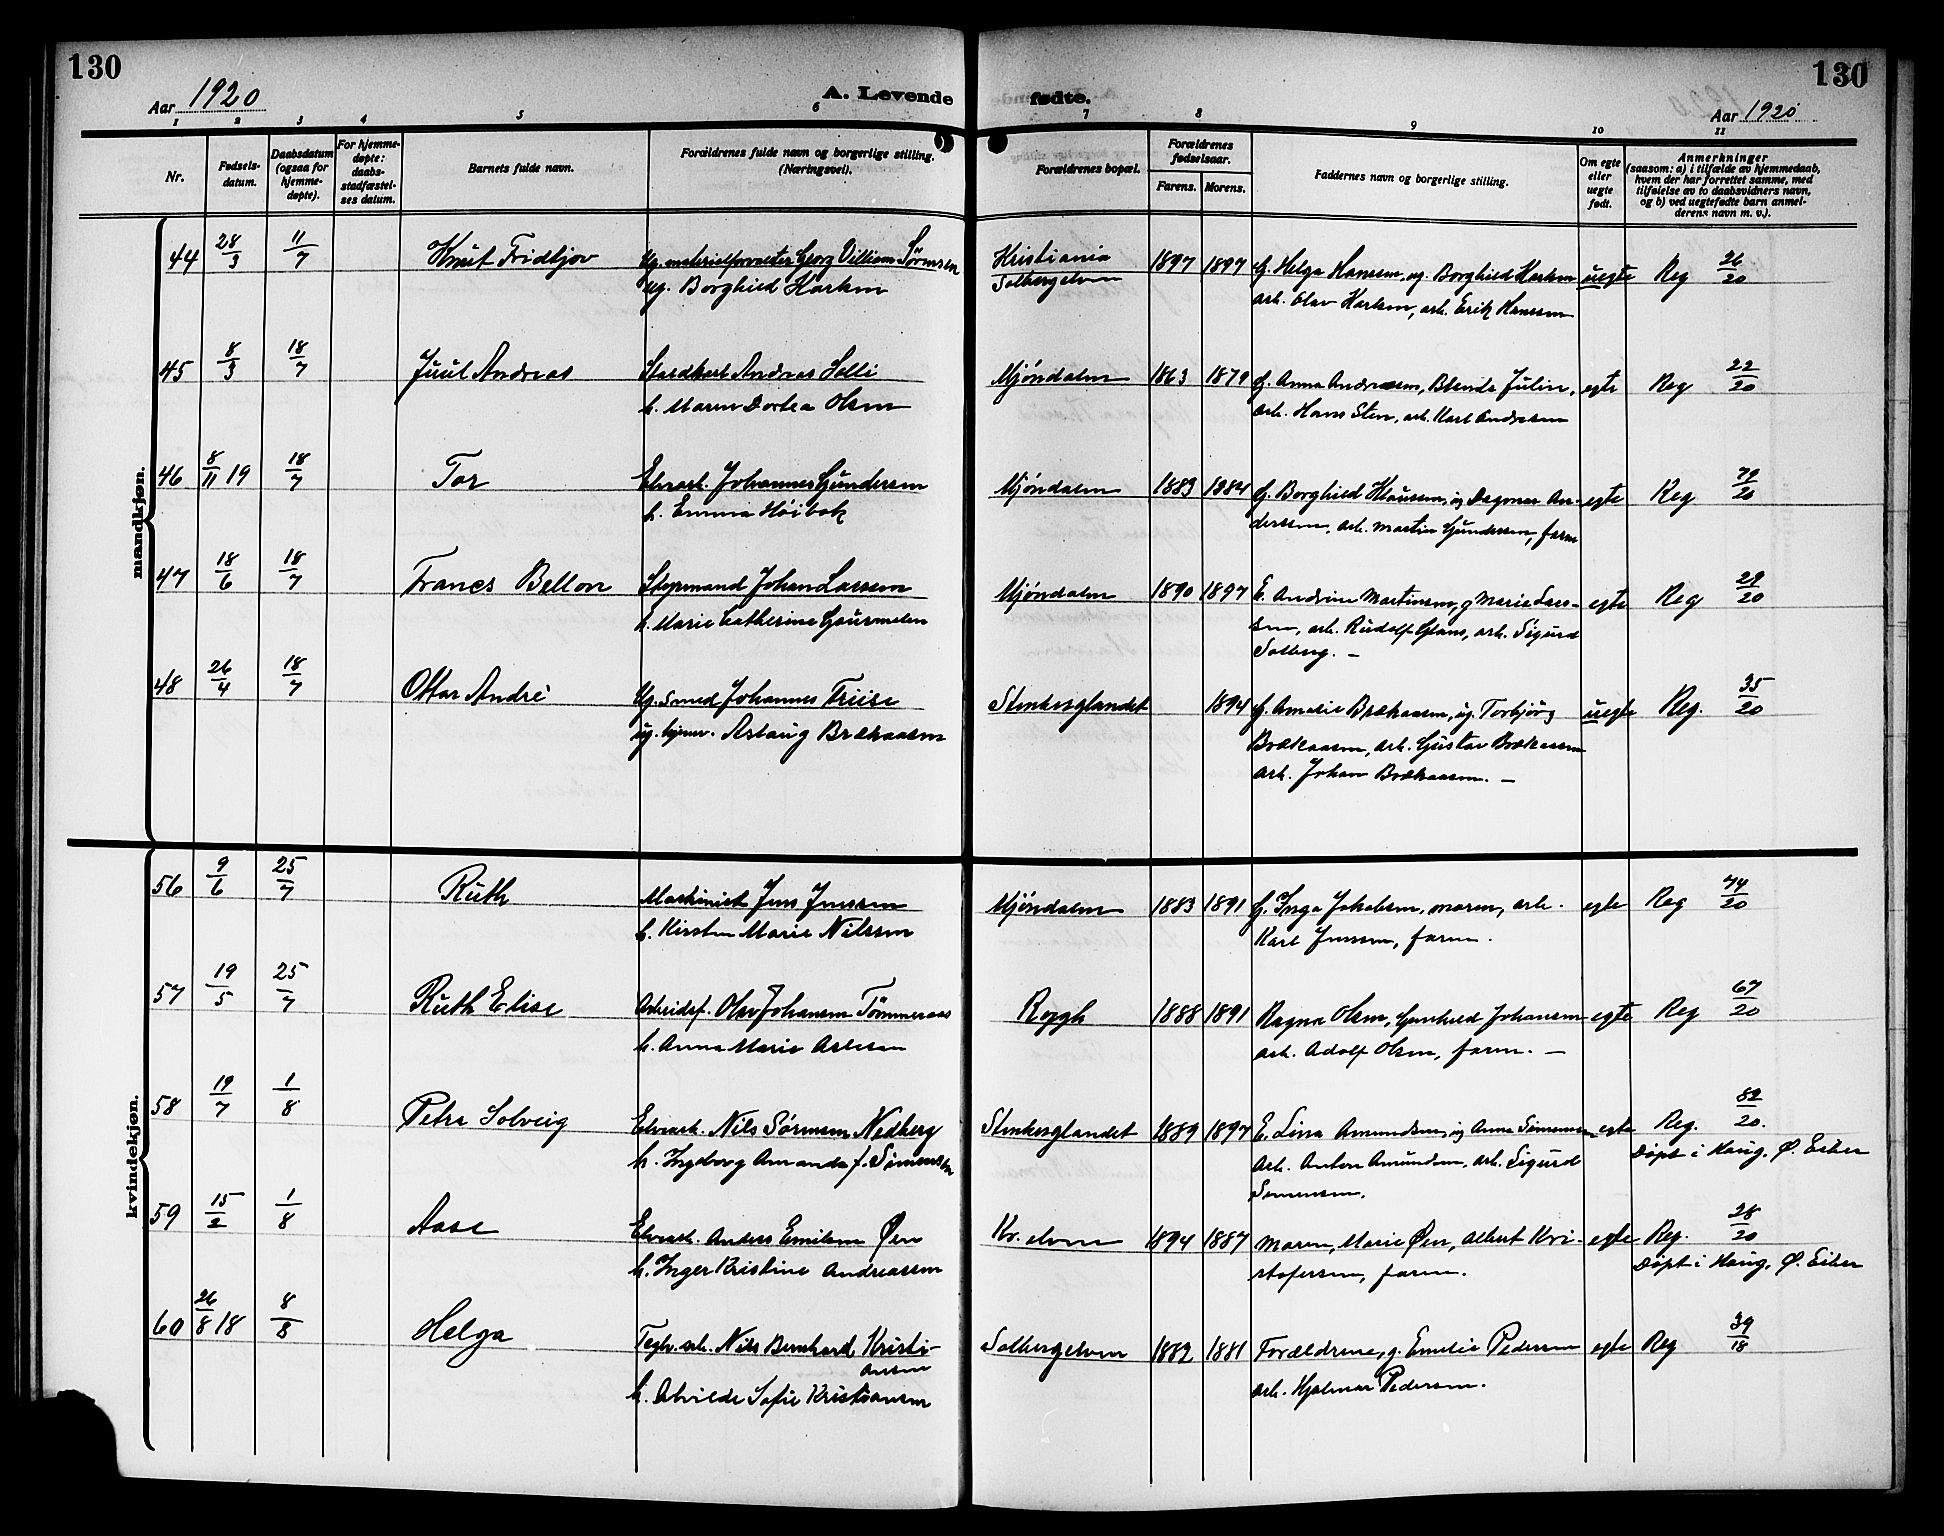 130
130
Aar 1920
A. Levende
fødte.
Aar 1920
1 2 3 4 5 6 7 8 9 10 11
Nr.
Fødsels-
datum.
Daabsdatum
(ogsaa for
hjemme-
døpte).
For hjemme-
døpte:
daabs-
stadfæstel-
ses datum.
Barnets fulde navn.
Forældrenes fulde navn og borgerlige stilling.
(Næringsvei).
Forældrenes bopæl.
Forældrenes
fødselsaar.
Farens. Morens.
Faddernes navn og borgerlige stilling.
Om egte
eller
uegte
født.
Anmerkninger
(saasom: a) i tilfælde av hjemmedaab,
hvem der har forrettet samme, med
tilføielse av to daabsvidners navn,
og b) ved uegtefødte barn anmel-
derens navn m. v.).
mandkjøn.
44 28/3 11/7 Knut Fridtjov Ug. materialforvalter Georg Villiam Sørensen
ug. Borghild Karlsen
Kristiania
Solbergelven
1897 1897 G. Helga Hanssen, ug. Borghild Karlsen
arb. Olav Karlsen, arb. Erik Hanssen
uegte Reg 26/20
45 8/3 18/7 Juul Andreas Andreas Solli
h. Maren Dortea Olsen
Mjøndalen 1863 1879 G. Anna Andresen, Blenda Julin,
arb. Hans Sten, arb. Karl Andresen
egte Reg 22/20
46 8/11 19 18/7 Tor Elvearb. Johannes Gundersen
h. Emma Høibak
Mjøndalen 1883 1884 G. Borghild Klausen, ug Dagmar An-
derssen, arb. Martin Gundersen, faren
egte Reg 79/20
47 18/6 18/7 Frances Bellon Styrmand Johan Larssen
h. Marie Catherine Gourmelen
Mjøndalen 1890 1897 E. Andrine Martinsen, g Marie Lars-
sen, arb. Rudolf Glans, arb. Sigurd
Solberg. –
egte Reg 29/20
48 26/4 18/7 Ottar André Ug. smed Johannes Friise
ug. hjemv. Aslaug Brækaasen
Stenbersglandet 1894 G. Amalie Brækaasen, ug. Torbjørg
Brækaasen, arb. Gustav Brækaasen
arb. Johan Brækaasen. –
uegte Reg. 35/20
kvindekjøn.
56 9/6 25/7 Ruth Maskinist Jens Jenssen
h. Kirsten Marie Nilssen
Mjøndalen 1883 1891 G. Inga Jakobsen, moren, arb.
Karl Jenssen, faren.
egte Reg 74/20
57 19/5 25/7 Ruth Elise Arbeidsf. Olav Johansen Tømmeraas
h. Anna Marie Aslesen
Ryggh 1888 1891 Ragna Olsen, Gunhild Johansen
arb. Adolf Olsen, faren. –
egte Reg 67/20
58 19/7 1/8 Petra Solveig Elvearb. Nils Sørensen Nedberg
h. Ingeborg Amanda f. Simensen
1889 1897 E. Lina Amundsen, ug Anna Simensen
arb. Anton Amundsen, arb. Sigurd
Simensen.
egte Reg. 82/20.
Døpt i Haug, Ø. Eiker
59 15/2 1/8 Aase Elvearb. Anders Emilsen Øen
h. Inger Kristine Andreassen
Kr. elven 1894 1887 moren, Marie Øen, Albert Kri-
stofersen, faren.
egte Reg. 28/20
Døpt i Haug, Ø. Eiker
60 26/8 18 8/8 Helga Teglv. arb. Nils Bernhard Kristi-
ansen
h. Alvilde Sofie Kristiansen
Solbergelven 1882 1881 Forældrene, g. Emilie Pedersen
arb. Hjalmar Pedersen.
egte Reg 39/18